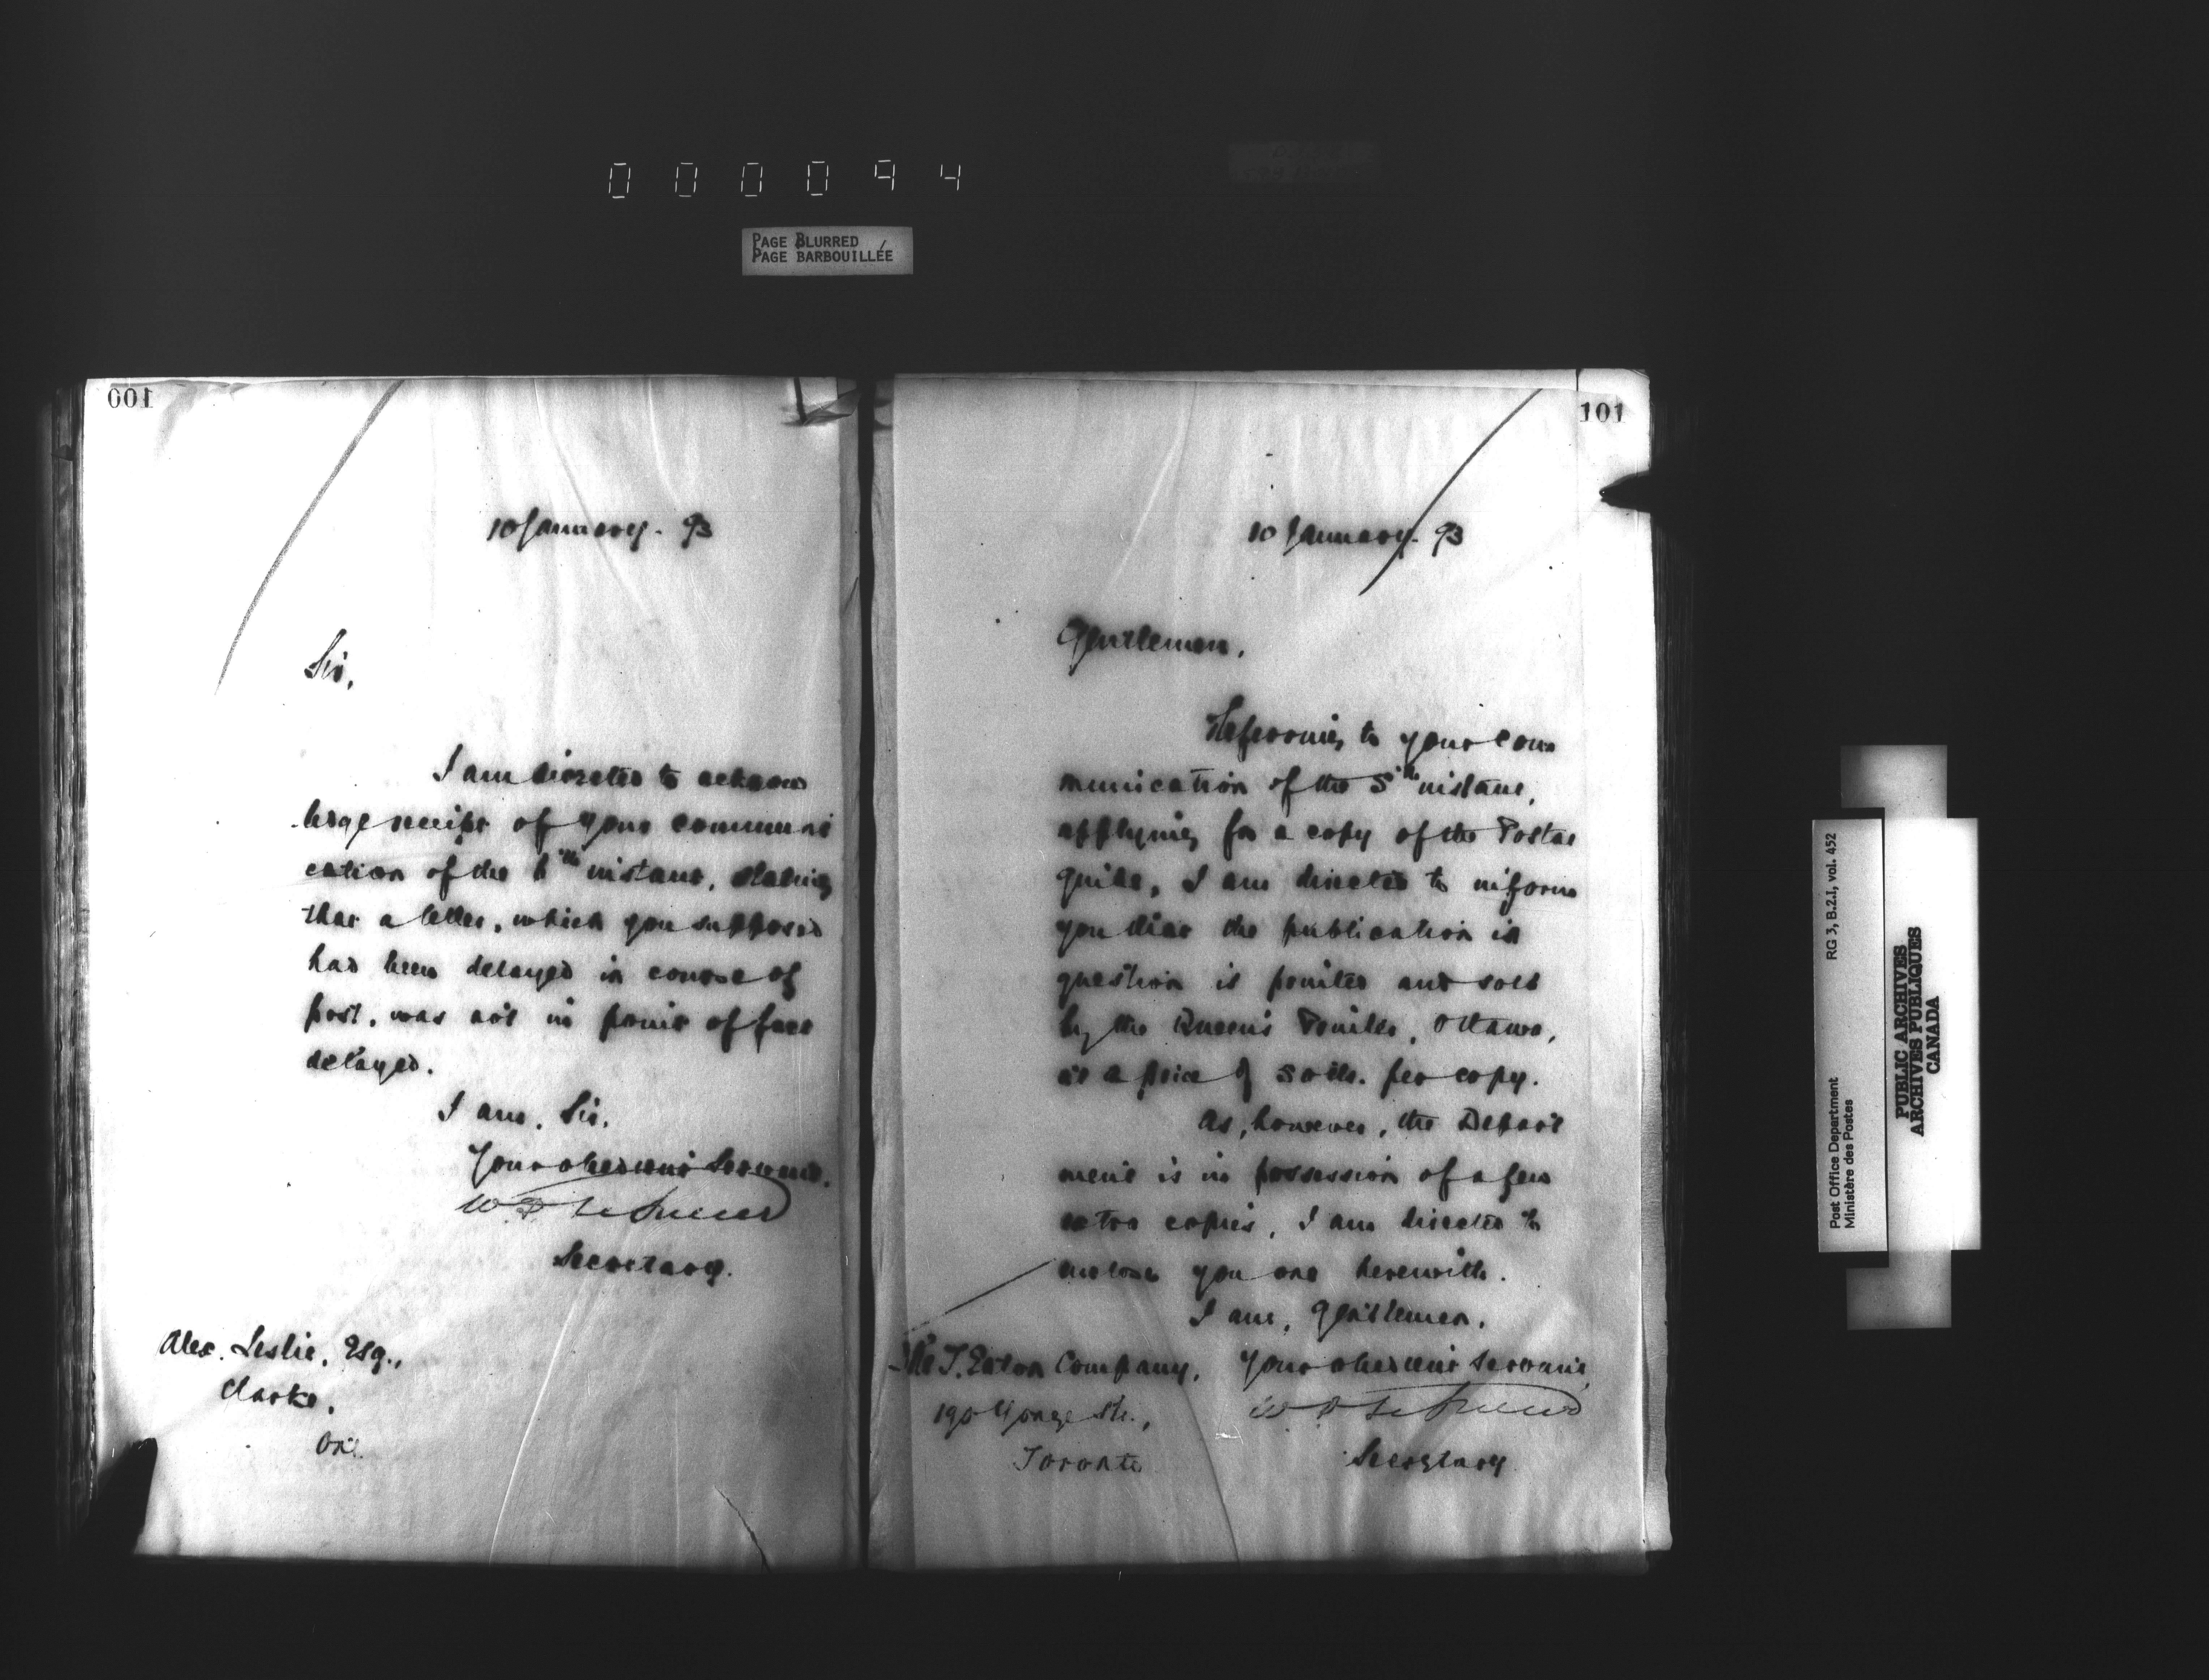 000094
PAGE BLURRED
PAGE BARBOUILLÉE
100
10 January. 93
Sir,
I am directed to acknow
ledge receipt of your communi
cation of the 6th instant, stating
that a letter, which you supposed
had been delayed in course of
post, was not in point of fact
delayed.
I am, Sir,
Your obedient Servant,
Secretary.
Alex. Leslie, Esq.,
Clarke,
Ont.
101
10 January. 93
Gentlemen,
Referring to your com
munication of the 5th instant,
applying for a copy of the Postal
Guide, I am directed to inform
you that the publication in
question is printed and sold
by the Queen's Printer, Ottawa,
at a price of cts. per copy.
As, however, the Depart
ment is in possession of a few
extra copies, I am directed to
enclose you one herewith.
I am, Gentlemen,
Your obedient Servant,
Secretary
The T. Eaton Company,
190 Yonge St.,
Toronto
RG 3, B.2.I, vol. 452
Post Office Department
Ministère des Postes
PUBLIC ARCHIVES
ARCHIVES PUBLIQUES
CANADA